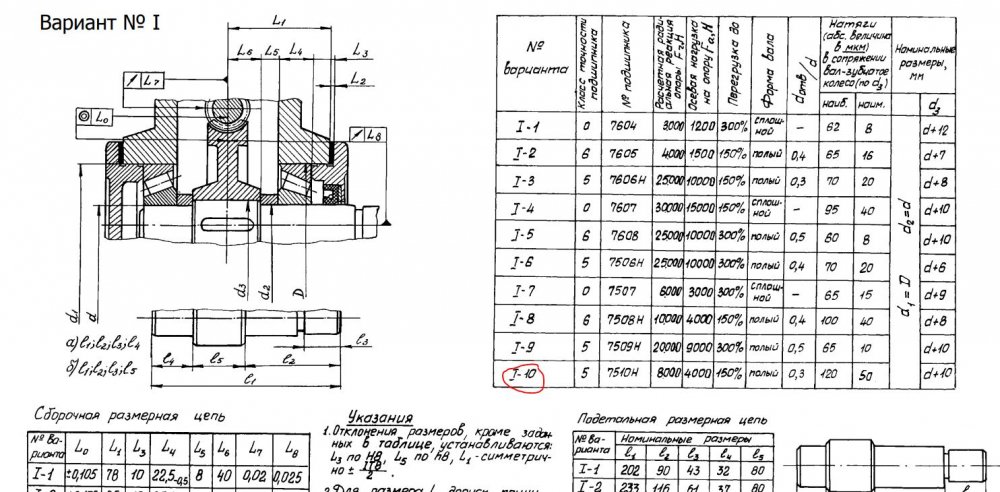 Вариант № I
L₁
L₆ L₅ L₄ L₃
L₂
L₇
L₀
L₈
d₁ d d₃ d₂ D
а) l₁; l₂; l₃; l₄
б) l₁; l₂; l₃; l₅
l₄ l₅ l₂ l₃
l₁
№ варианта | Класс точности подшипника | № подшипника | Расчетная радиальная реакция опоры Fr, Н | Осевая нагрузка на опору Fa, Н | Перегрузка до | Форма вала | dотв/d | Натяги (абс. величина в мкм) в сопряжении вал-зубчатое колесо (по d₃) | Номинальные размеры, мм
наиб. | наим. | d₃
I-1 | 0 | 7604 | 3000 | 1200 | 300% | сплошной | – | 62 | 8 | d+12
I-2 | 6 | 7605 | 4000 | 1500 | 150% | полый | 0,4 | 65 | 16 | d+7
I-3 | 5 | 7606Н | 25000 | 10000 | 150% | полый | 0,3 | 70 | 20 | d+8
I-4 | 0 | 7607 | 30000 | 15000 | 150% | сплошной | – | 95 | 40 | d+10
I-5 | 6 | 7608 | 25000 | 10000 | 300% | полый | 0,5 | 60 | 8 | d+10
I-6 | 5 | 7506Н | 25000 | 10000 | 300% | полый | 0,4 | 70 | 20 | d+6
I-7 | 0 | 7507 | 6000 | 3000 | 300% | сплошной | – | 65 | 15 | d+9
I-8 | 6 | 7508Н | 10000 | 4000 | 150% | полый | 0,4 | 100 | 40 | d+8
I-9 | 5 | 7509Н | 20000 | 9000 | 300% | полый | 0,5 | 65 | 10 | d+10
I-10 | 5 | 7510Н | 8000 | 4000 | 150% | полый | 0,3 | 120 | 50 | d+10
d₁=D d₂=d
Сборочная размерная цепь
№ варианта | L₀ | L₁ | L₃ | L₄ | L₅ | L₆ | L₇ | L₈
I-1 | ±0,105 | 78 | 10 | 22,5₋₀,₅ | 8 | 40 | 0,02 | 0,025
Указания
1. Отклонения размеров, кроме заданных в таблице, устанавливаются:
L₃ по H8, L₅ по h8, L₁ - симметрично ± IT8/2.
Подетальная размерная цепь
№ варианта | Номинальные размеры
l₁ | l₂ | l₃ | l₄ | l₅
I-1 | 202 | 90 | 43 | 32 | 80
I-2 | 233 | 116 | 61 | 37 | 80